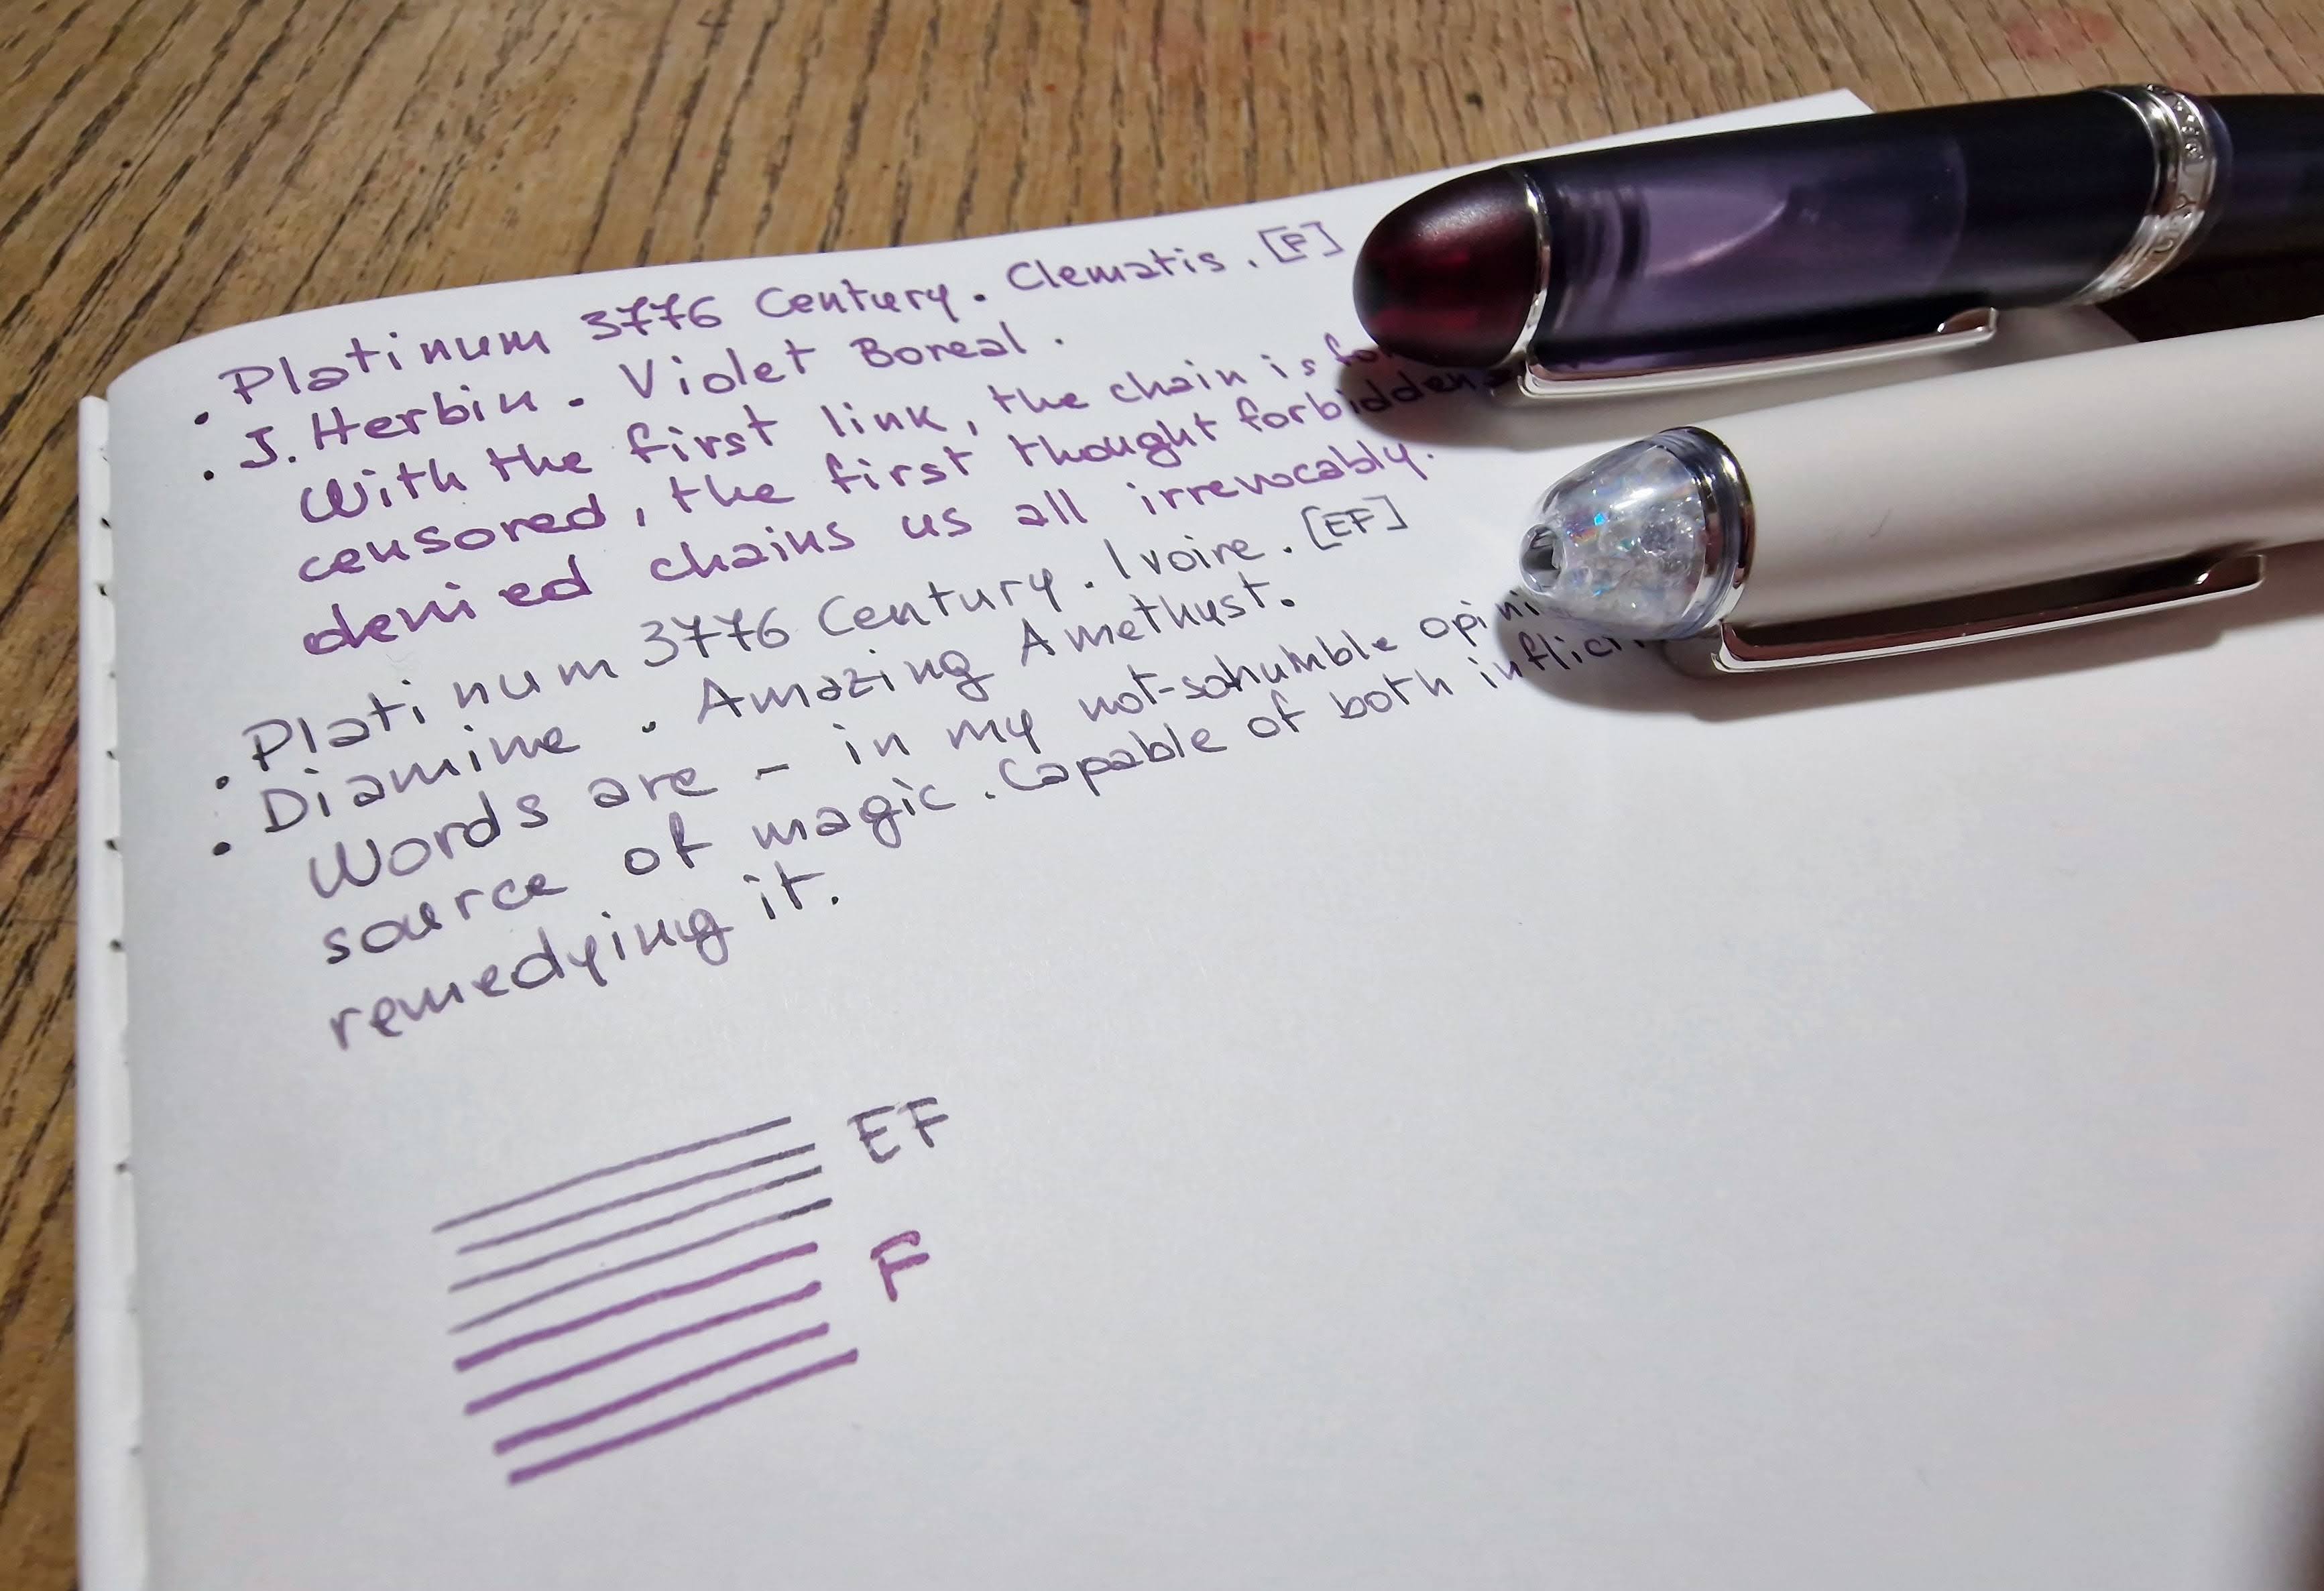 . Platinum 3776 Century. Clematis. [F]
. J. Herbin. Violet Boreal.
With the first link, the chain is
censored, the first thought forbidden
denied chains us all irrevocably.
. Platinum 3776 Century. Ivoire. [EF]
. Diamine. Amazing Amethyst.
Words are - in my not-sohumble
source of magic. Capable of both
remedying it.
EF
F